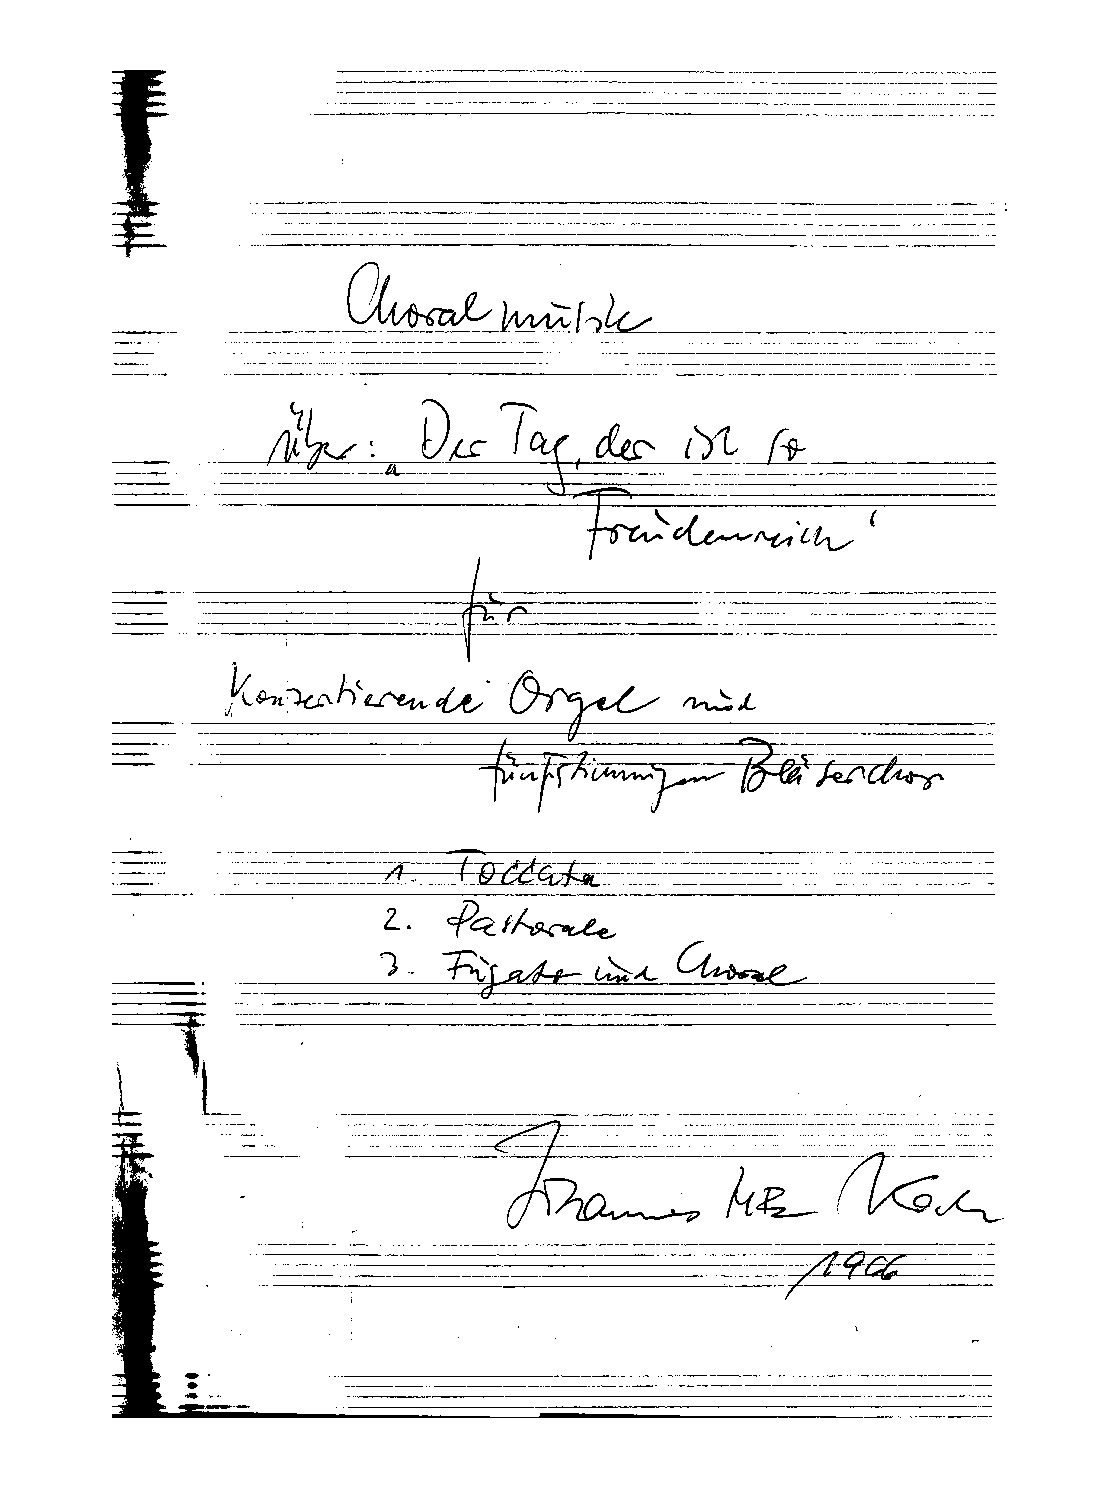 Choralmusik
über: „Der Tag, der ist so
Freudenreich‘
für
Konzertierende Orgel und
fünfstimmigen Bläserchor
1. Toccata
2. Pastorale
3. Fugato und Choral
Johannes H. E. Koch
1966